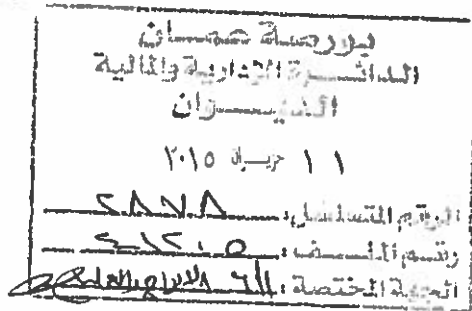 بورصة عمان
الدائرة الادارية والمالية
الديوان
١١ حزيران ٢٠١٥
الرقم المتسلسل: ٢٨٧٨
رقم الملف: ٤١٢٠٥
الجهة المختصة: